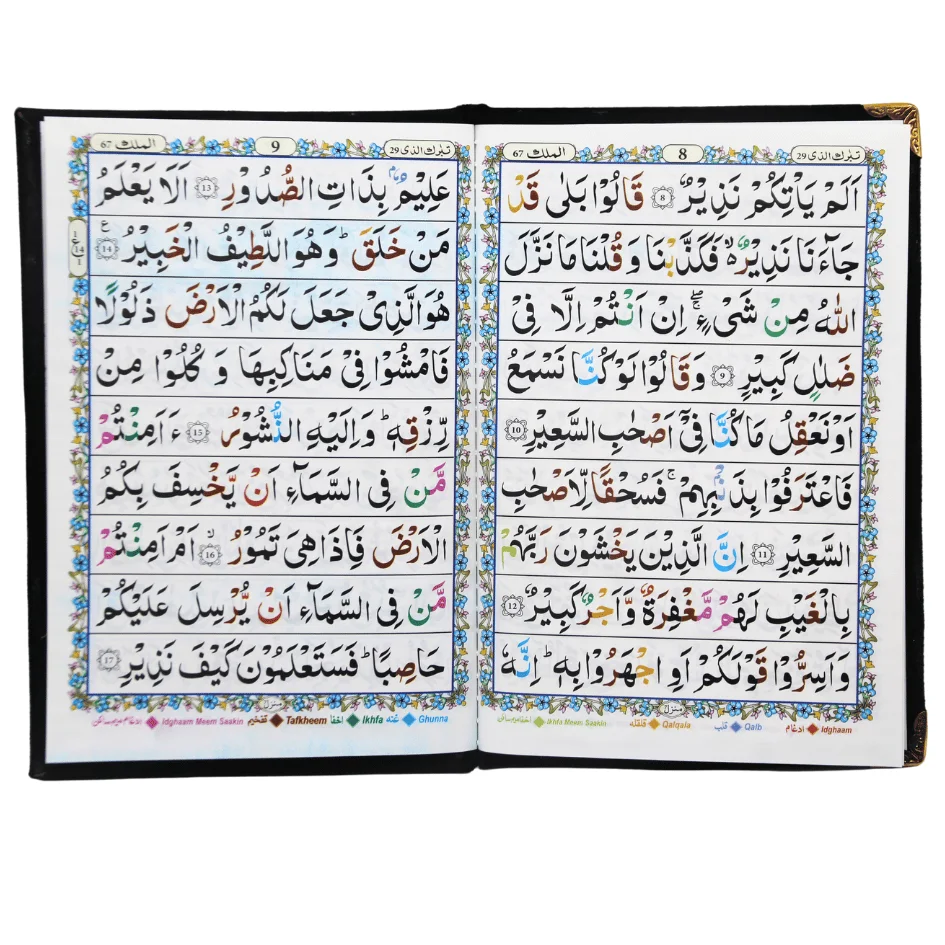 تبٰرك الذى 29
8
الملك 67
اَلَمْ يَاْتِكُمْ نَذِيْرٌ ۝8 قَالُوْا بَلٰى قَدْ
جَآءَنَا نَذِيْرٌ ۙ۬ فَكَذَّبْنَا وَ قُلْنَا مَا نَزَّلَ
اللّٰهُ مِنْ شَىْءٍ ۖۚ اِنْ اَنْتُمْ اِلَّا فِىْ
ضَلٰلٍ كَبِيْرٍ ۝9 وَقَالُوْا لَوْ كُنَّا نَسْمَعُ
اَوْ نَعْقِلُ مَا كُنَّا فِىْۤ اَصْحٰبِ السَّعِيْرِ ۝10
فَاعْتَرَفُوْا بِذَنْۢبِهِمْ ۚ فَسُحْقًا لِّاَصْحٰبِ
السَّعِيْرِ ۝11 اِنَّ الَّذِيْنَ يَخْشَوْنَ رَبَّهُمْ
بِالْغَيْبِ لَهُمْ مَّغْفِرَةٌ وَّاَجْرٌ كَبِيْرٌ ۝12
وَاَسِرُّوْا قَوْلَكُمْ اَوِ اجْهَرُوْا بِهٖ ؕ اِنَّهٗ
منزل
Idghaam ادغام Qalb قلب Qalqala قلقله Ikhfa Meem Saakin اخفا ميم ساكن
تبٰرك الذى 29
9
الملك 67
عَلِيْمٌۢ بِذَاتِ الصُّدُوْرِ ۝13 اَلَا يَعْلَمُ
مَنْ خَلَقَ ؕ وَهُوَ اللَّطِيْفُ الْخَبِيْرُ ۝14 ع
1 ع 14 1
هُوَ الَّذِىْ جَعَلَ لَكُمُ الْاَرْضَ ذَلُوْلًا
فَامْشُوْا فِىْ مَنَاكِبِهَا وَ كُلُوْا مِنْ
رِّزْقِهٖ ؕ وَاِلَيْهِ النُّشُوْرُ ۝15 ءَاَمِنْتُمْ
مَّنْ فِى السَّمَآءِ اَنْ يَّخْسِفَ بِكُمُ
الْاَرْضَ فَاِذَا هِىَ تَمُوْرُ ۙ۝16 اَمْ اَمِنْتُمْ
مَّنْ فِى السَّمَآءِ اَنْ يُّرْسِلَ عَلَيْكُمْ
حَاصِبًا ؕ فَسَتَعْلَمُوْنَ كَيْفَ نَذِيْرِ ۝17
منزل
Ghunna غنه Ikhfa اخفا Tafkheem تفخيم Idghaam Meem Saakin ادغام ميم ساكن